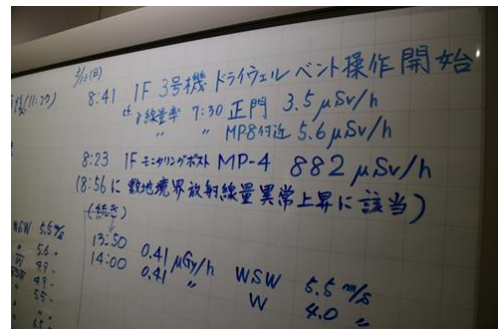 3/13(日)
8:41 1F 3号機 ドライウェルベント操作開始
cf. γ線量率 7:30 正門 3.5μSv/h
〃 〃 MP8付近 5.6μSv/h
8:23 1F モニタリングポスト MP-4 882μSv/h
(8:56に敷地境界放射線量異常上昇に該当)
(続き)
13:50 0.41 μGy/h WSW 5.5 m/s
14:00 0.41 〃 W 4.0 〃
(11:20)
WSW 5.5 m/s
5.6 〃
W 4.9 〃
4.9 〃
5.5 〃